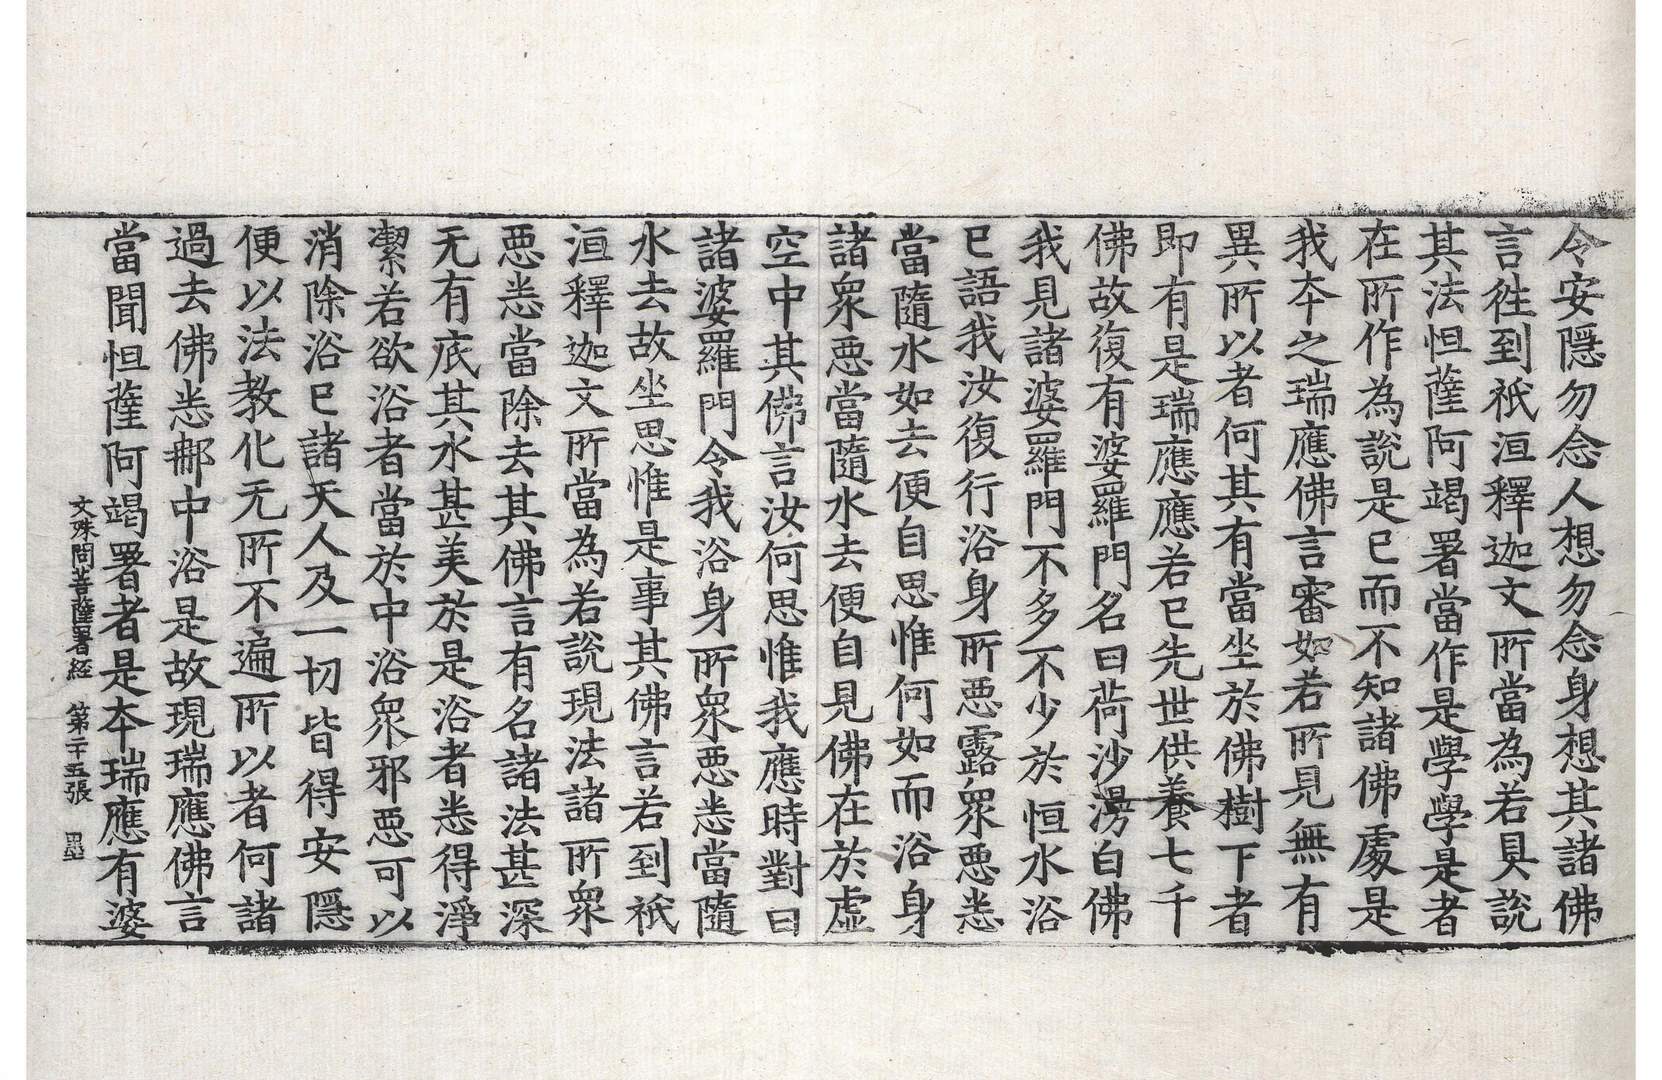 令安隱勿念人想勿念身想其諸佛
言徃到祇洹釋迦文所當為若具說
其法怛薩阿竭署當作是學學是者
在所作為說是已而不知諸佛處是
我本之瑞應佛言審如若所見無有
異所以者何其有當坐於佛樹下者
即有是瑞應應若已先世供養七千
佛故復有婆羅門名曰荷沙漫白佛
我見諸婆羅門不多不少於恒水浴
已語我汝復行浴身所惡露衆惡悉
當隨水如去便自思惟何如而浴身
諸衆惡當隨水去便自見佛在於虛
空中其佛言汝何思惟我應時對曰
諸婆羅門令我浴身所衆惡悉當隨
水去故坐思惟是事其佛言若到祇
洹釋迦文所當為若說現法諸所衆
惡悉當除去其佛言有名諸法甚深
无有底其水甚美於是浴者悉得淨
潔若欲浴者當於中浴衆邪惡可以
消除浴已諸天人及一切皆得安隱
便以法教化无所不遍所以者何諸
過去佛悉都中浴是故現瑞應佛言
當聞怛薩阿竭署者是本瑞應有婆
文殊問菩薩署經 第二十五張 墨